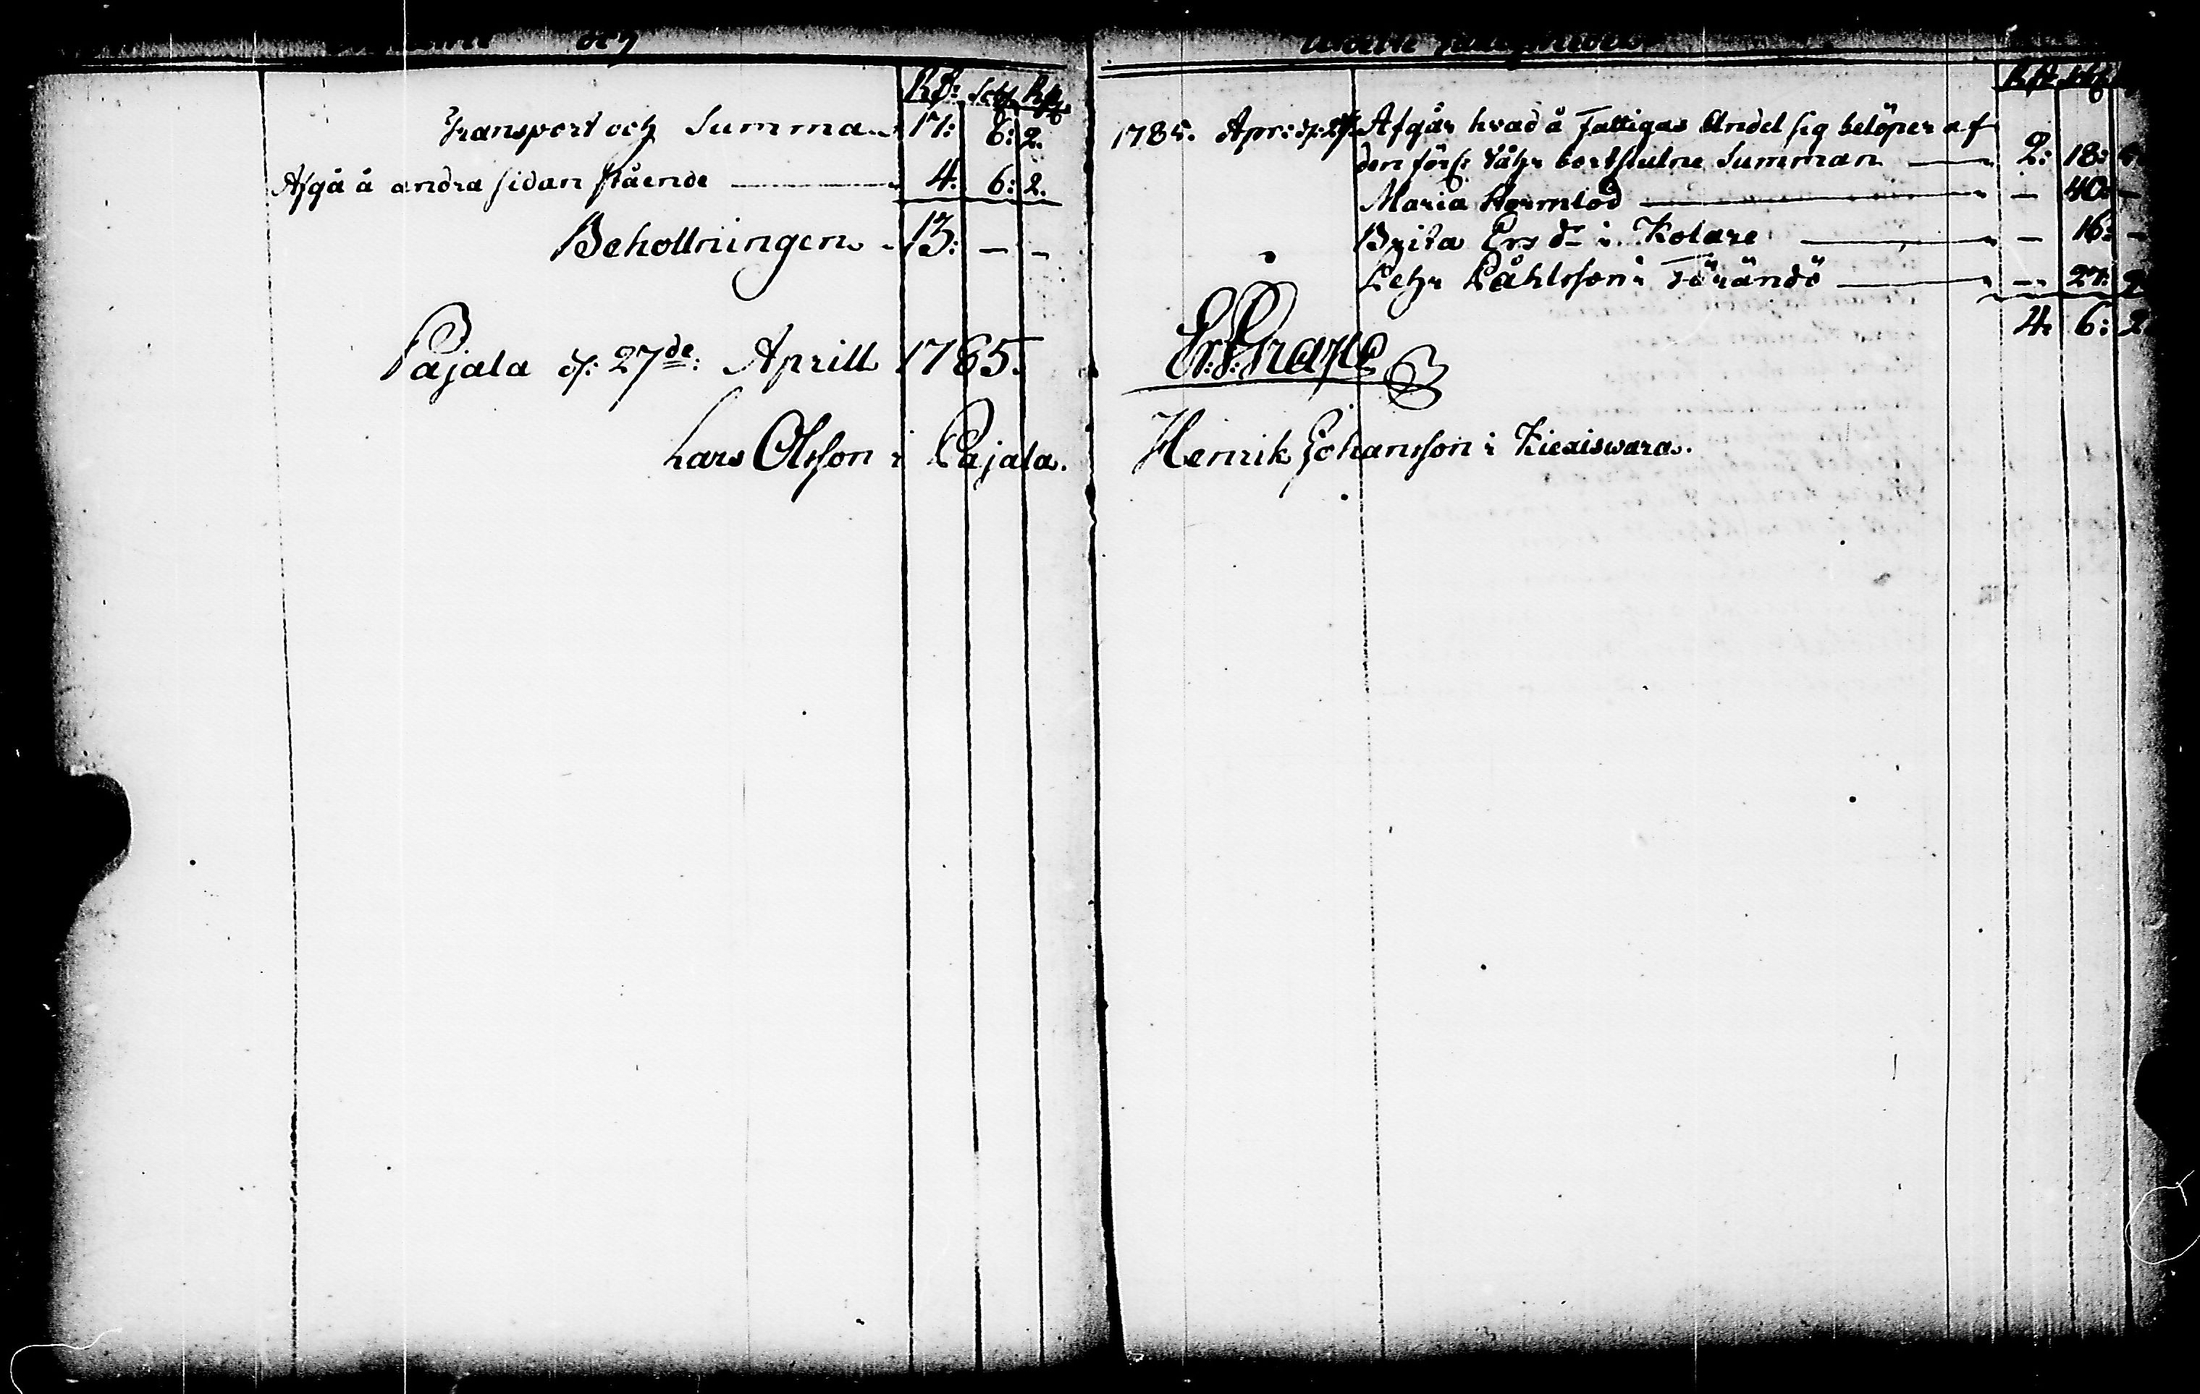 och
Rdr. Sch. R.
Transport och Summa 17: 6: 2.
Afgå å andra sidan stående 4: 6: 2.
Behollningen 13: — —
Pajala d: 27de: Aprill 1785.
Lars Olsson i Pajala.
Rdr Sch
1785. Apr: d: 27. Afgår hvad å Fattigas Andel sig belöper af
den förl: Våhr bortstulne Summan 2: 18:
Maria Hormlöd — 40: —
Brita Ersdr i Kolare — 16: —
Pehr Påhlsson i Tärändö — 27: 2
4: 6: 2
Henrik Johansson i Kiexiswara.